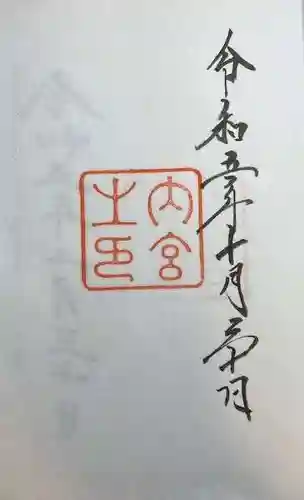 令和五年十月三十日
内宮
之印